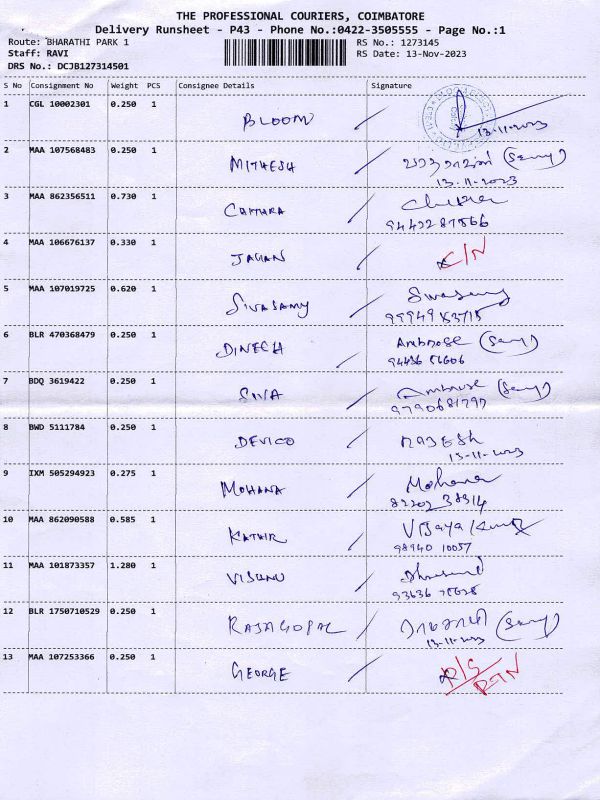 THE PROFESSIONAL COURIERS, COIMBATORE
Delivery Runsheet - P43 - Phone No.:0422-3505555 - Page No.:1
Route: BHARATHI PARK 1 RS No.: 1273145
Staff: RAVI RS Date: 13-Nov-2023
DRS No.: DCJB127314501
S No Consignment No Weight PCS Consignee Details Signature
1 CGL 10002301 0.250 1 BLOOM 13-11-2023
2 MAA 107568483 0.250 1 MITHESH
13-11-2023
3 MAA 862356511 0.730 1 CAITHRA
9442287566
4 MAA 106676137 0.330 1 JAGAN C/N
5 MAA 107019725 0.620 1 SIVASAMY Swasamy
6 BLR 470368479 0.250 1 DINECH Ambrose
7 BDQ 3619422 0.250 1 SIVA Ambrose
9790681797
8 BWD 5111784 0.250 1 DEVICO RAJESH
13-11-2023
9 IXM 505294923 0.275 1 MOHANA Mohana
8220238314
10 MAA 862090588 0.585 1 KATHIR Vijaya Kumar
98940 10057
11 MAA 101873357 1.280 1 VISHNU
12 BLR 1750710529 0.250 1 RAJAGOPAL
13-11-2023
13 MAA 107253366 0.250 1 GEORGE R/S
RTN